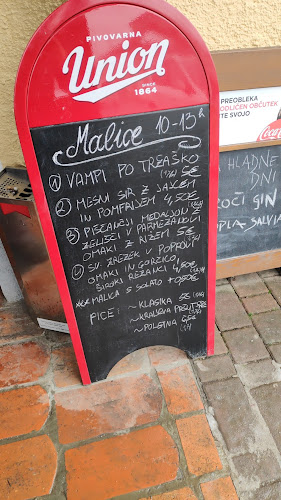 PIVOVARNA
Union
SINCE
1864
Malice 10-13h
① VAMPI PO TRŽAŠKO 5€
② MESNI SIR Z JAJCEM
IN POMFRIJEM 4,50€
③ PIŠČANČJI MEDALJON Z
ZELIŠČI V PARMEZANOVI
OMAKI Z RIŽEM 5€
④ SV. ZREZEK V POPROVI
OMAKI IN GORZILO,
ŠIROKI REZANCI 4,50€
MALICA S SOLATO +0,50€
PICE: ~ KLASIKA 5€
~ KRALJEVA PRŠUT
~ POLETNA 6,5€
PREOBLEKA
ODLIČEN OBČUTEK
TE SVOJO
Coca
HLADNE
DNI
OČI GIN
PLA SALVIA